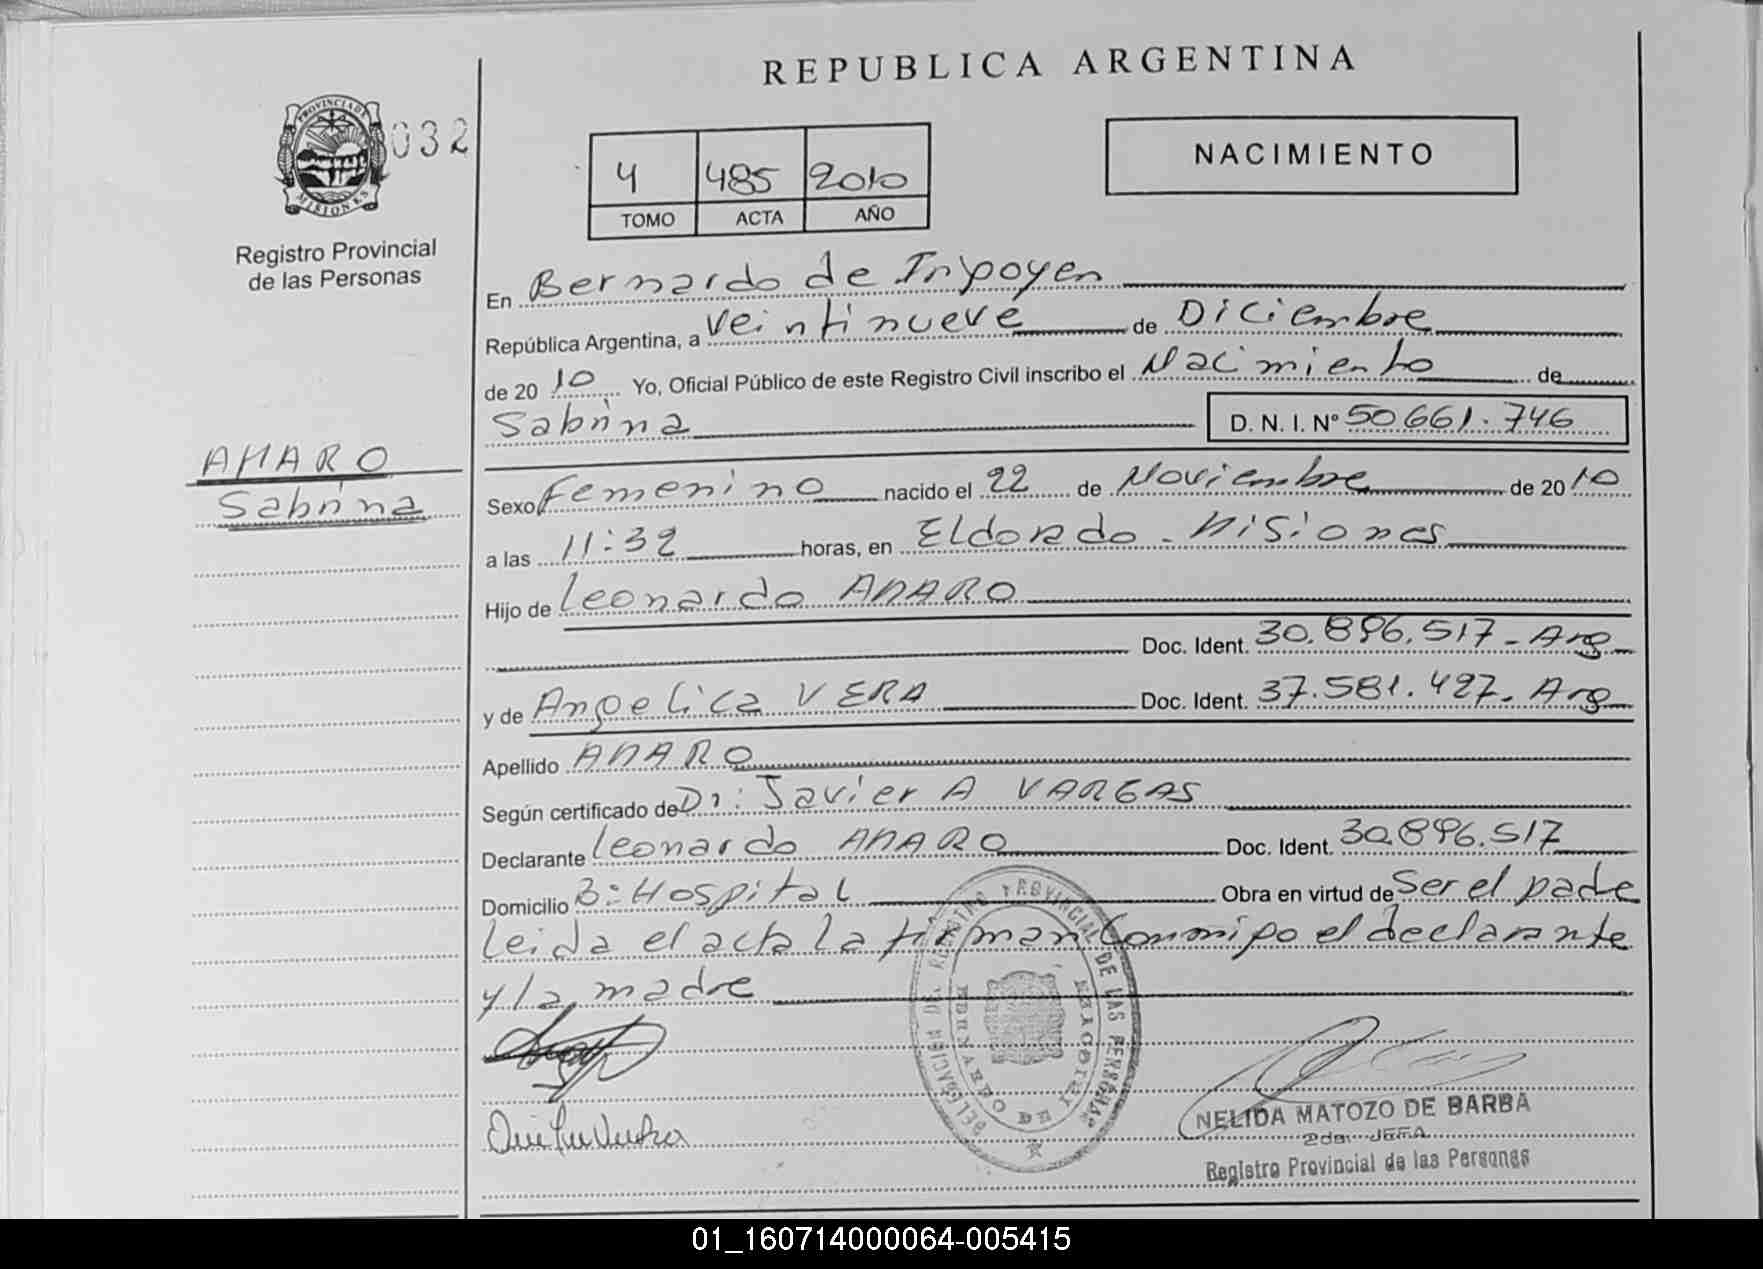 REPUBLICA ARGENTINA
PROVINCIA DE
MISIONES
032
Registro Provincial
de las Personas
4 485 2010
TOMO ACTA AÑO
NACIMIENTO
En Bernardo de Irigoyen
República Argentina, a veintinueve de Diciembre
de 2010 Yo, Oficial Público de este Registro Civil inscribo el Nacimiento de
Sabrina D. N. I. Nº 50661.746
AMARO
Sabrina
Sexo Femenino nacido el 22 de Noviembre de 2010
a las 11:32 horas, en Eldorado - Misiones
Hijo de Leonardo AMARO
Doc. Ident. 30.896.517 - Arg
y de Angelica VERA Doc. Ident. 37.581.427 - Arg
Apellido AMARO
Según certificado de Dr: Javier A VARGAS
Declarante Leonardo AMARO Doc. Ident. 30.896.517
Domicilio B: Hospital Obra en virtud de Ser el padre
leida el acta la firman Conmigo el declarante
y la madre
REGISTRO PROVINCIAL DE LAS PERSONAS
DELEGACION
BERNARDO DE IRIGOYEN
NELIDA MATOZO DE BARBA
2da. JEFA
Registro Provincial de las Personas
01_160714000064-005415